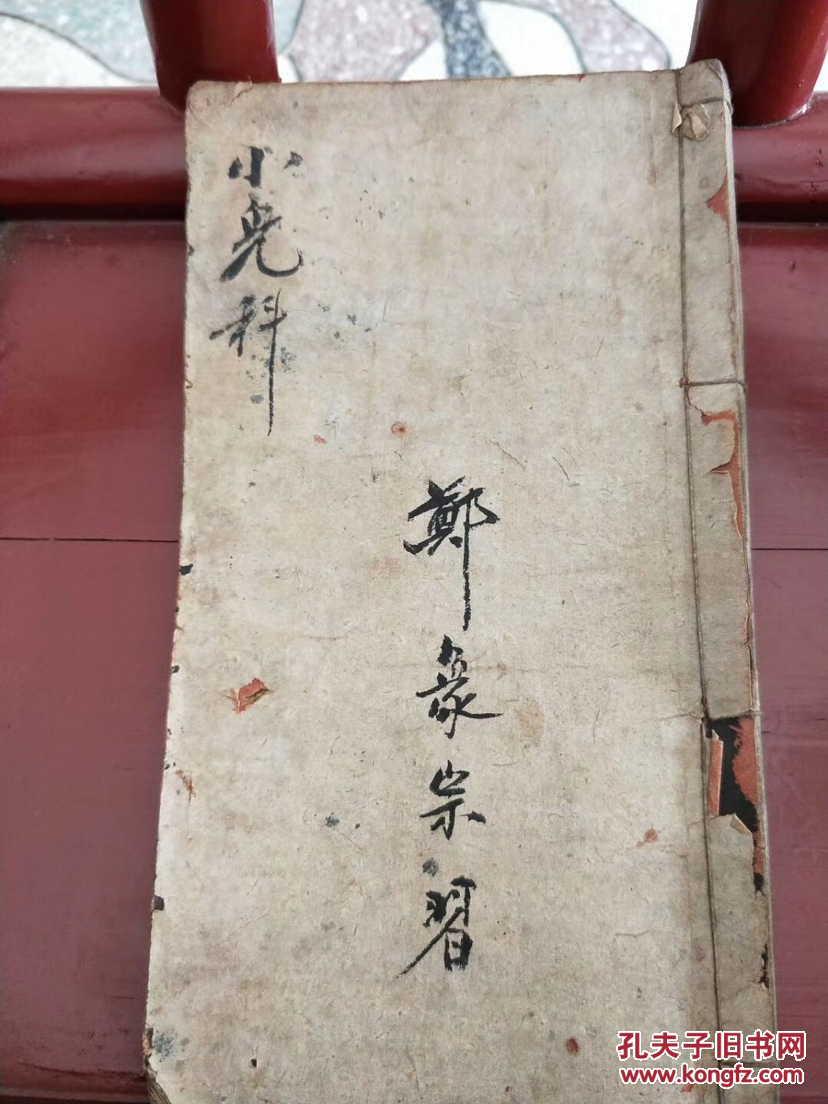 小兒科
鄭象宗習
孔夫子旧书网
www.kongfz.com